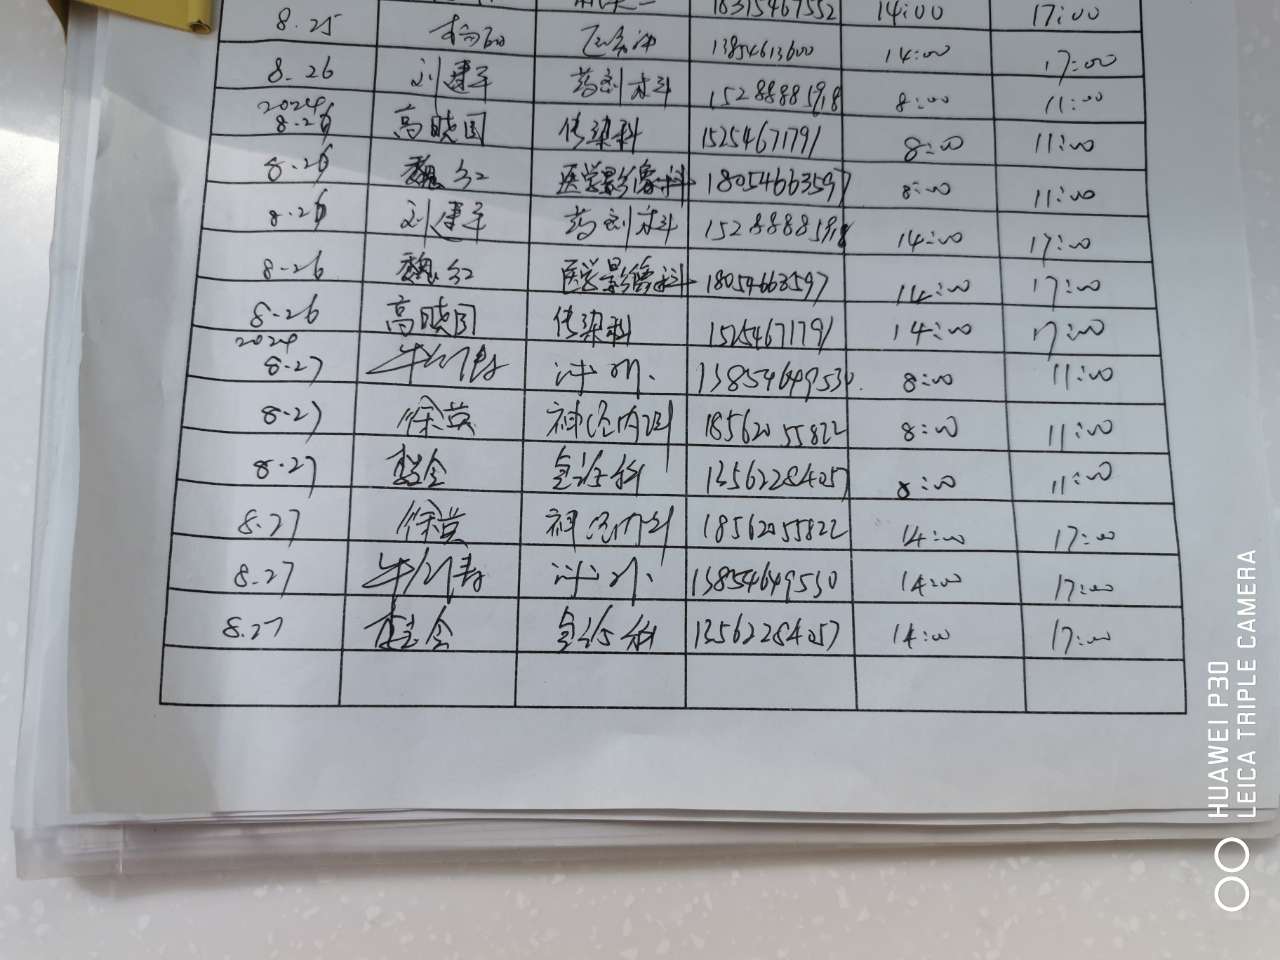 16315467552 14:00 17:00
8.25 杨 13854613600 14:00 17:00
8.26 刘建军 药剂科 15288885918 8:00 11:00
2024
8.26 高晓国 传染科 15254671791 8:00 11:00
8.26 魏红 医学影像科 18054663597 8:00 11:00
8.26 刘建军 药剂科 15288885918 14:00 17:00
8.26 魏红 医学影像科 18054663597 14:00 17:00
8.26 高晓国 传染科 15254671791 14:00 17:00
2024
8.27 13854649530 8:00 11:00
8.27 徐英 神经内科 18562055822 8:00 11:00
8.27 13562284057 8:00 11:00
8.27 徐英 神经内科 18562055822 14:00 17:00
8.27 13854649530 14:00 17:00
8.27 13562284057 14:00 17:00
HUAWEI P30
LEICA TRIPLE CAMERA